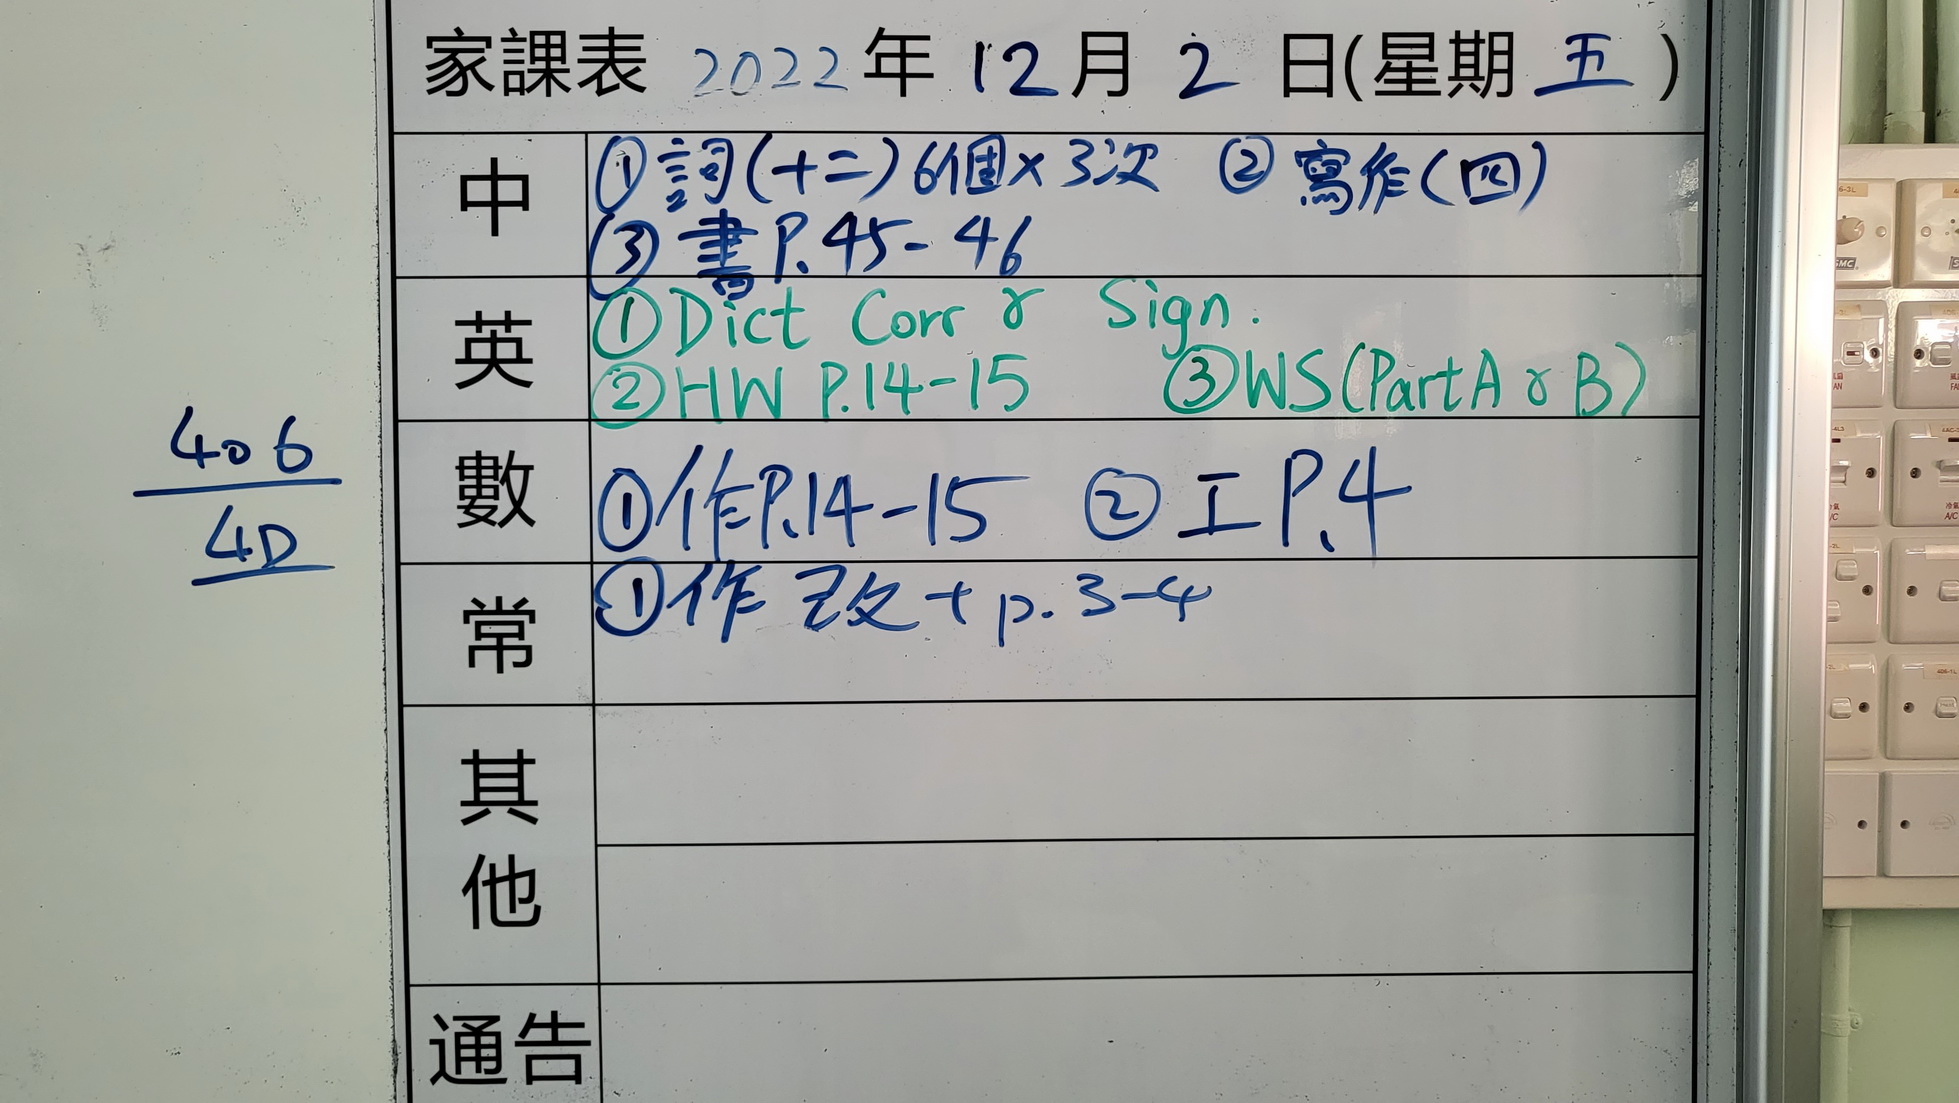 家課表 2022年 12月 2 日(星期 五 )
中
① 詞(十二) 6個×3次 ② 寫作(四)
③ 書 P.45-46
英
① Dict Corr & Sign.
② HW P.14-15 ③ WS (Part A & B)
數
① 作P.14-15 ② 工 P.4
常
① 作 改 + p.3-4
其他
通告
406
4D